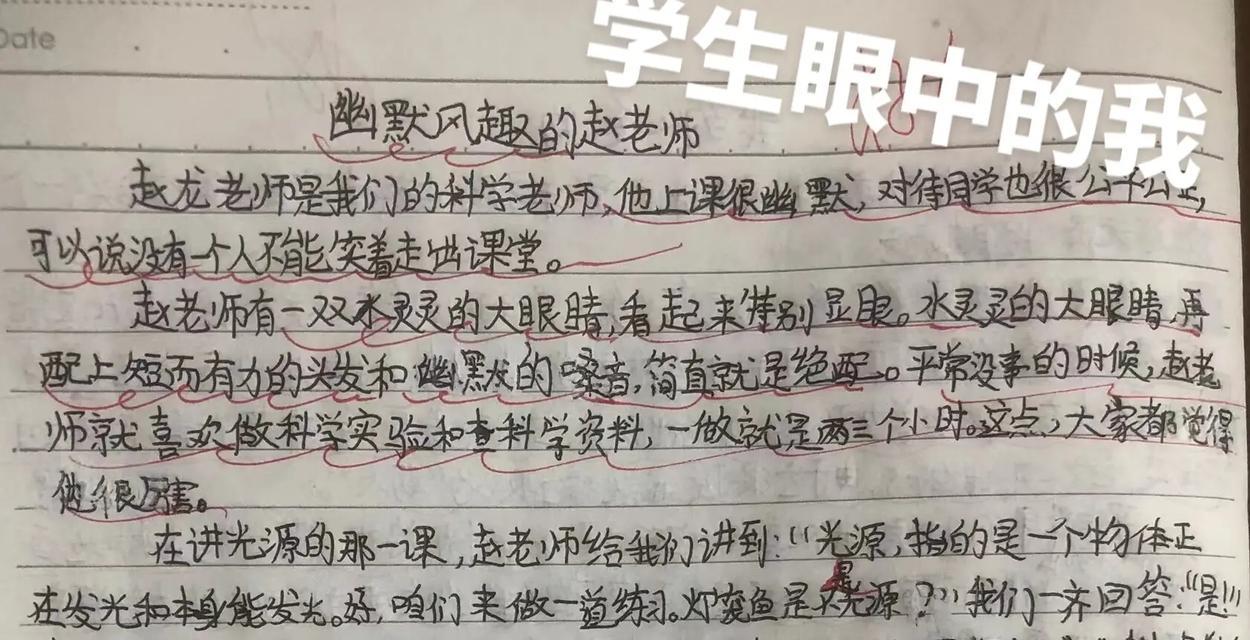 Date
学生眼中的我
幽默风趣的赵老师
赵龙老师是我们的科学老师,他上课很幽默,对待同学也很公平公正,
可以说没有一个人不能笑着走出课堂。
赵老师有一双水灵灵的大眼睛,看起来特别显眼。水灵灵的大眼睛,再
配上短而有力的头发和幽默的嗓音,简直就是绝配。平常没事的时候,赵老
师就喜欢做科学实验和查科学资料,一做就是两三个小时。这点,大家都觉得
他很厉害。
在讲光源的那一课,赵老师给我们讲到:“光源,指的是一个物体正
在发光和本身能发光。好,咱们来做一道练习。灯笼鱼是光源?”我们一齐回答:“是!”